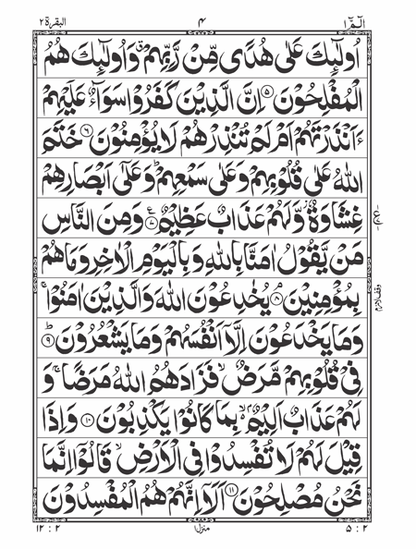 الٓمّٓ ١
٤
البقرة ٢
اُولٰٓئِكَ عَلٰى هُدًى مِّنْ رَّبِّهِمْ ۗ وَاُولٰٓئِكَ هُمُ
الْمُفْلِحُوْنَ ۝٥ اِنَّ الَّذِيْنَ كَفَرُوْا سَوَآءٌ عَلَيْهِمْ
ءَاَنْذَرْتَهُمْ اَمْ لَمْ تُنْذِرْهُمْ لَا يُؤْمِنُوْنَ ۝٦ خَتَمَ
اللّٰهُ عَلٰى قُلُوْبِهِمْ وَعَلٰى سَمْعِهِمْ ؕ وَعَلٰٓى اَبْصَارِهِمْ
غِشَاوَةٌ ؗ وَّلَهُمْ عَذَابٌ عَظِيْمٌ ۝٧ وَمِنَ النَّاسِ
مَنْ يَّقُوْلُ اٰمَنَّا بِاللّٰهِ وَبِالْيَوْمِ الْاٰخِرِ وَمَا هُمْ
بِمُؤْمِنِيْنَ ۝٨ يُخٰدِعُوْنَ اللّٰهَ وَالَّذِيْنَ اٰمَنُوْا ۚ
وَمَا يَخْدَعُوْنَ اِلَّآ اَنْفُسَهُمْ وَمَا يَشْعُرُوْنَ ۝٩
فِيْ قُلُوْبِهِمْ مَّرَضٌ ۙ فَزَادَهُمُ اللّٰهُ مَرَضًا ۚ وَ
لَهُمْ عَذَابٌ اَلِيْمٌ ۢ ۙ بِمَا كَانُوْا يَكْذِبُوْنَ ۝١٠ وَاِذَا
قِيْلَ لَهُمْ لَا تُفْسِدُوْا فِى الْاَرْضِ ۙ قَالُوْٓا اِنَّمَا
نَحْنُ مُصْلِحُوْنَ ۝١١ اَلَآ اِنَّهُمْ هُمُ الْمُفْسِدُوْنَ
٢ : ٥
منزل
٢ : ١٢